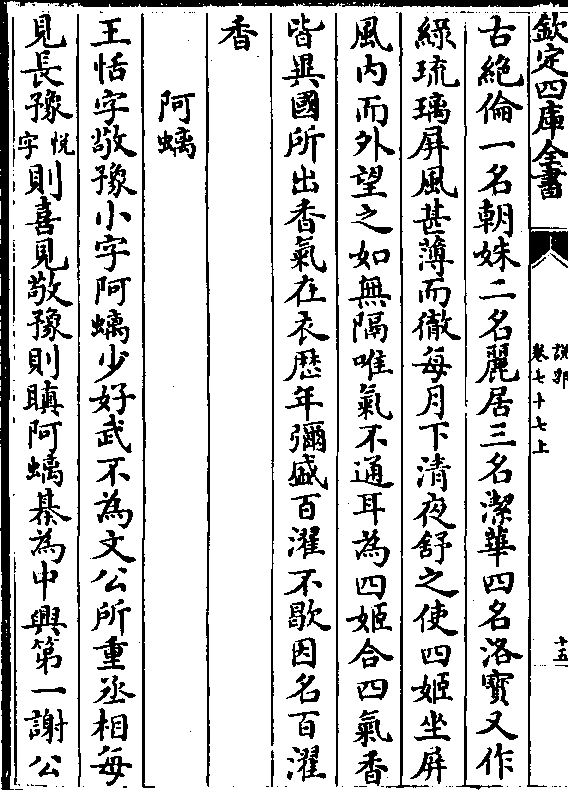 欽定四庫全書
說郛
卷七十七上
十五
古絶倫一名朝姝二名麗居三名潔華四名洛寳又作
綠琉璃屏風甚薄而徹每月下清夜舒之使四姬坐屏
風内而外望之如無隔唯氣不通耳為四姬合四氣香
皆異國所出香氣在衣歴年彌盛百濯不歇因名百濯
香
阿螭
王恬字敬豫小字阿螭少好武不為文公所重丞相每
見長豫悦字則喜見敬豫則瞋阿螭棊為中興第一謝公